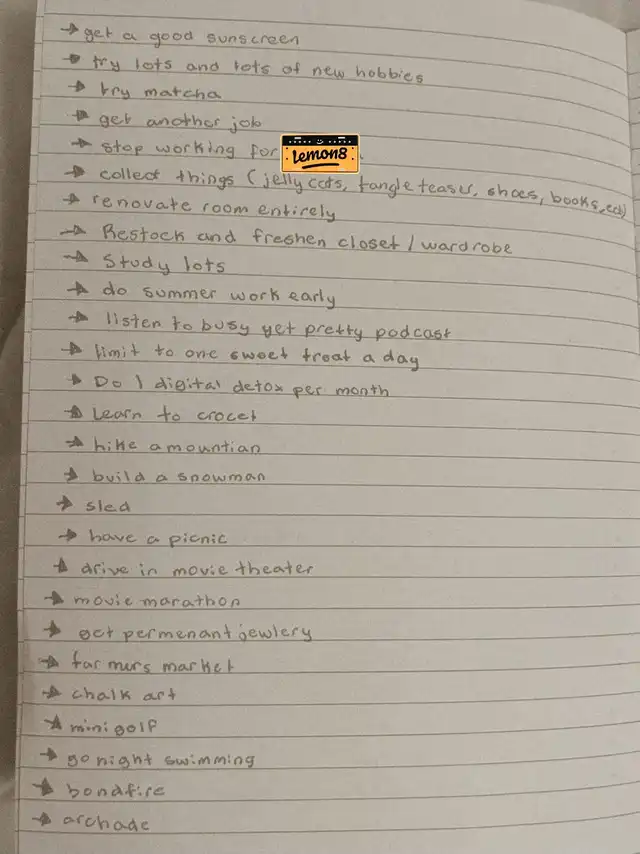 → get a good sunscreen
→ try lots and lots of new hobbies
→ try matcha
→ get another job
→ stop working for lemon8
→ collect things (jelly cats, tangle teaser, shoes, books, ect)
→ renovate room entirely
→ Restock and freshen closet / wardrobe
→ Study lots
→ do summer work early
→ listen to busy yet pretty podcast
→ limit to one sweet treat a day
→ Do 1 digital detox per month
→ Learn to crocet
→ hike a mountian
→ build a snowman
→ sled
→ have a picnic
→ drive in movie theater
→ movie marathon
→ get permenant jewlery
→ farmurs market
→ chalk art
→ mini golf
→ go night swimming
→ bondfire
→ archade